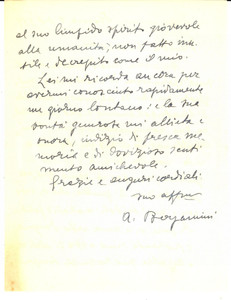 al suo limpido spirito giovevole
alla umanità; non fatto inu-
tile e decrepito come il mio.
Lei mi ricorda ancora per
avermi conosciuto rapidamente
un giorno lontano: e la sua
bontà generosa mi allieta e
onora, indizio di fresca me-
moria e di dovizioso senti-
mento amichevole.
Grazie e auguri cordiali
suo affmo
A. Bergamini